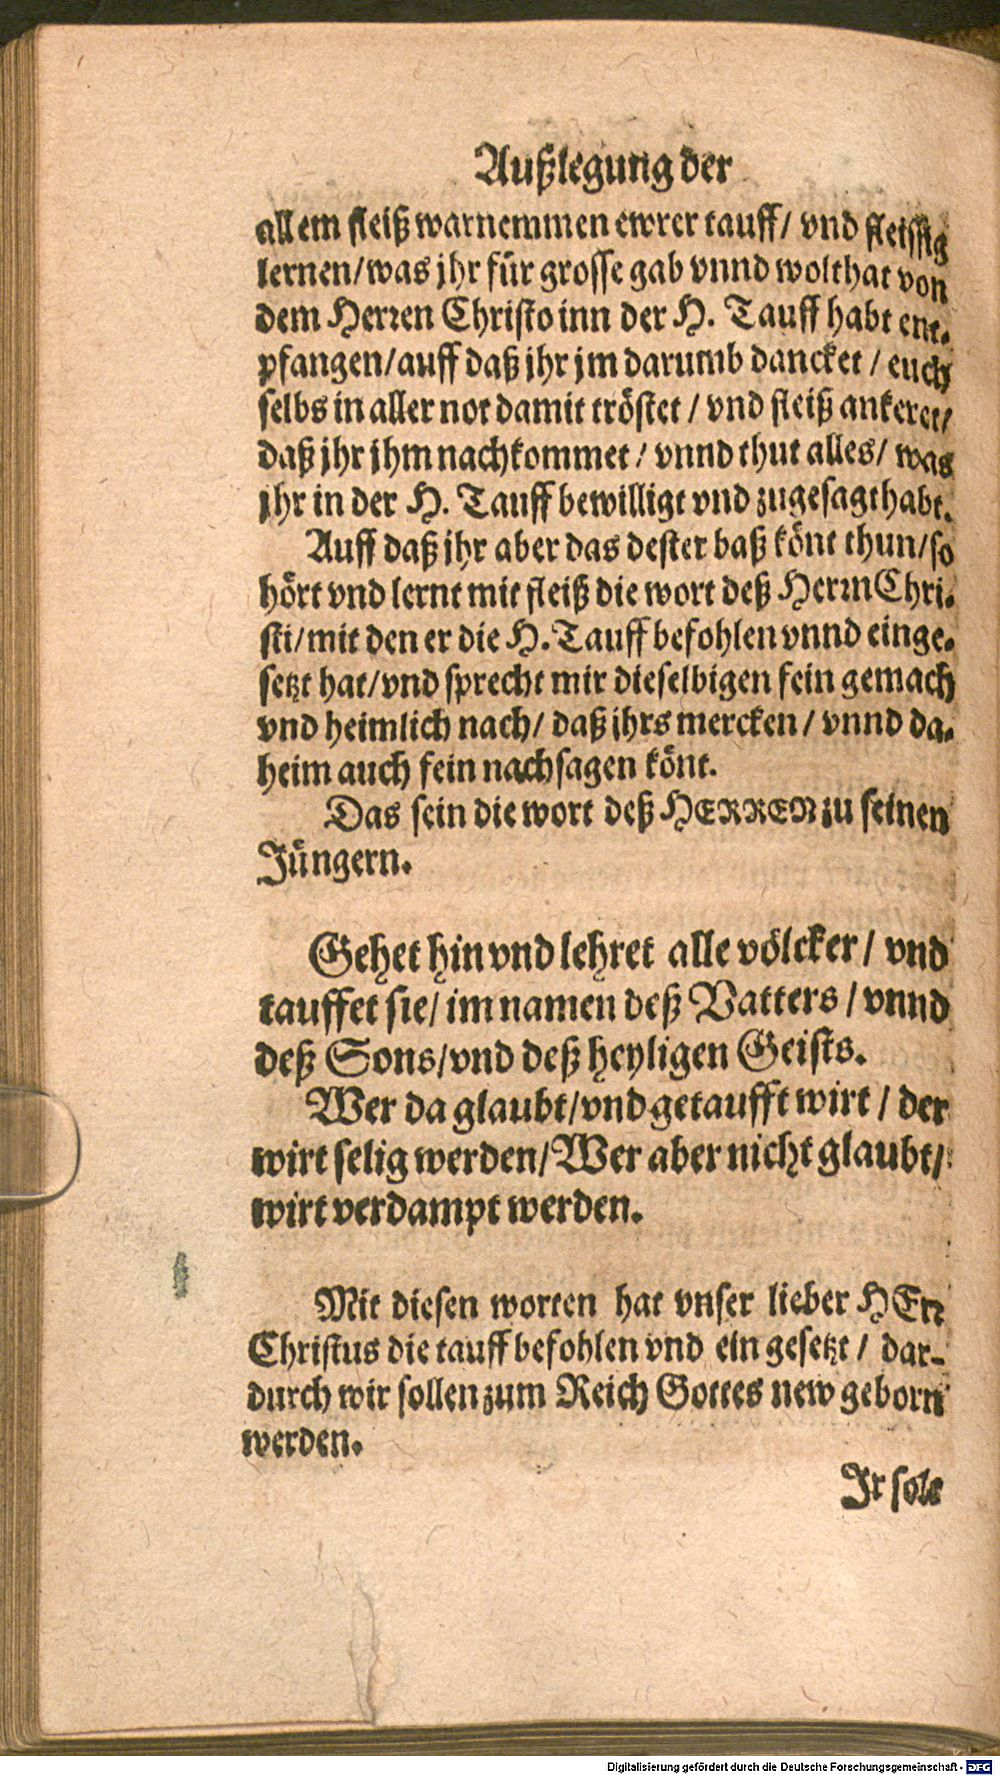 Außlegung der
allem fleiß warnemmen ewrer tauff/ vnd fleissig
lernen/was jhr für grosse gab vnnd wolthat von
dem Herren Christo inn der H. Tauff habt ent-
pfangen/auff daß jhr jm darumb dancket / euch
selbs in aller not damit tröstet / vnd fleiß ankeret/
daß jhr jhm nachkommet / vnnd thut alles/ was
jhr in der H. Tauff bewilligt vnd zugesagt habt.
Auff daß jhr aber das dester baß könt thun/so
hört vnd lernt mit fleiß die wort deß Herrn Chri-
sti/mit den er die H. Tauff befohlen vnnd einge-
setzt hat/vnd sprecht mir dieselbigen fein gemach
vnd heimlich nach/ daß jhrs mercken / vnnd da-
heim auch fein nachsagen könt.
Das sein die wort deß HERREN zu seinen
Jüngern.
Gehet hin vnd lehret alle völcker/ vnd
tauffet sie/ im namen deß Vatters / vnnd
deß Sons/vnd deß heyligen Geists.
Wer da glaubt/vnd getaufft wirt / der
wirt selig werden/Wer aber nicht glaubt/
wirt verdampt werden.
Mit diesen worten hat vnser lieber HErr
Christus die tauff befohlen vnd ein gesetzt / dar-
durch wir sollen zum Reich Gottes new geborn
werden.
Ir solt
Digitalisierung gefördert durch die Deutsche Forschungsgemeinschaft - DFG